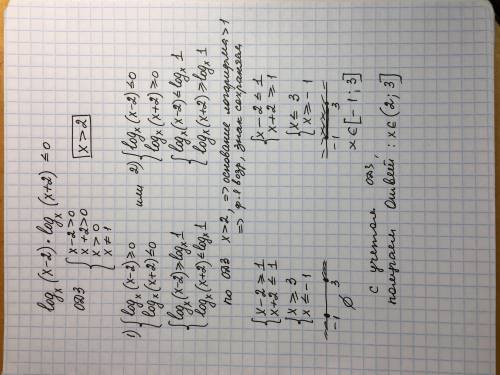 logₓ(x-2) · logₓ(x+2) ≤ 0
ОДЗ { x-2>0
x+2>0
x>0
x≠1
x>2
1) { logₓ(x-2) ≥ 0
logₓ(x+2) ≤ 0
или 2) { logₓ(x-2) ≤ 0
logₓ(x+2) ≥ 0
{ logₓ(x-2) ≥ logₓ1
logₓ(x+2) ≤ logₓ1
{ logₓ(x-2) ≤ logₓ1
logₓ(x+2) ≥ logₓ1
по ОДЗ x>2, => основание логарифма >1
=> ф-я возр, знак сохраняем
{ x-2 ≥ 1
x+2 ≤ 1
{ x-2 ≤ 1
x+2 ≥ 1
{ x ≥ 3
x ≤ -1
{ x ≤ 3
x ≥ -1
-1 3
∅
-1 3
x∈[-1; 3]
с учетом ОДЗ,
получаем Ответ: x∈(2; 3]